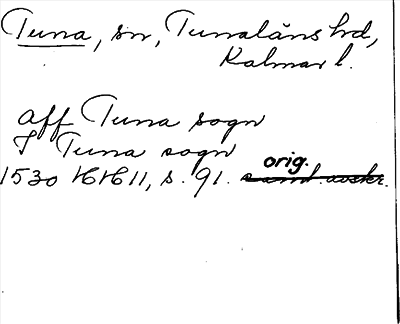 Tuna, sn, Tunaläns hd,
Kalmar l.
aff Tuna sogn
I Tuna sogn
orig.
1530 HH 11, s. 91. samt. avskr.